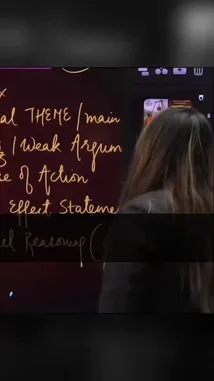 al THEME/main
/Weak Argum
se of Action
Effect Stateme
el Reasoning (